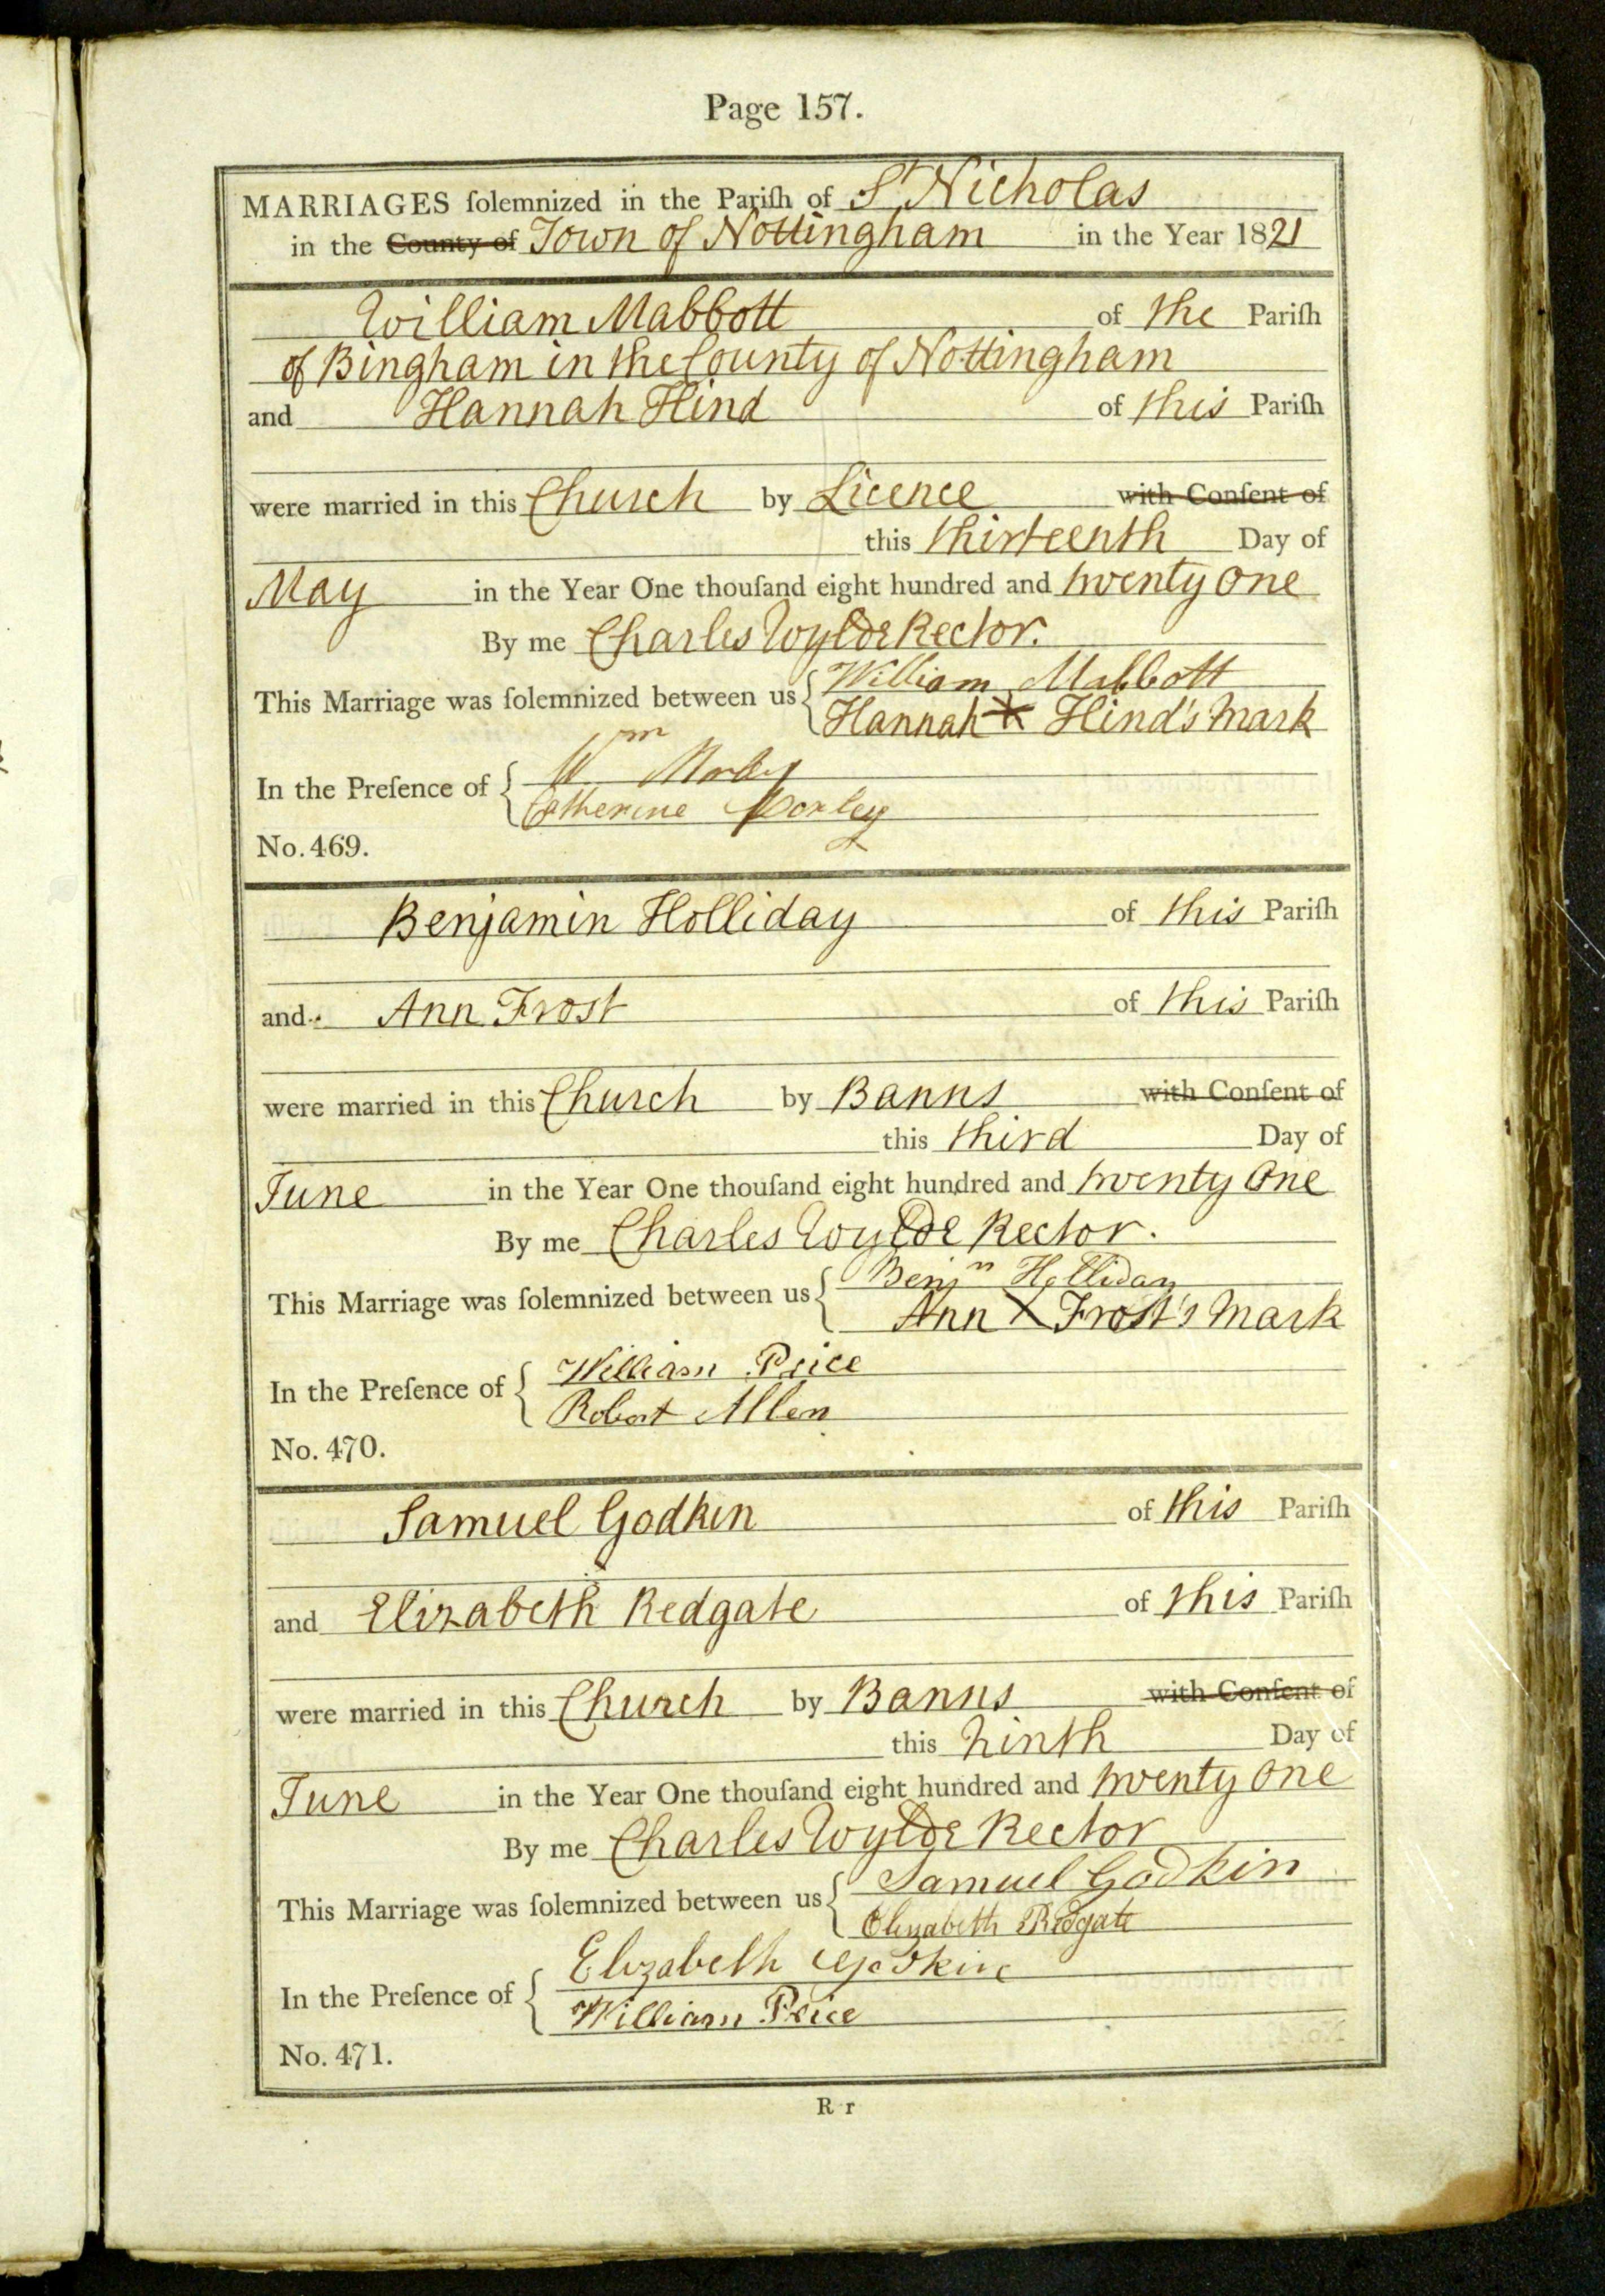 Page 157.
MARRIAGES ſolemnized in the Pariſh of St Nicholas
in the County of Town of Nottingham in the Year 1821
William Mabbott of the Pariſh
of Bingham in the County of Nottingham
and Hannah Hind of this Pariſh
were married in this Church by Licence with Conſent of
this thirteenth Day of
May in the Year One thouſand eight hundred and twenty one
By me Charles Wylde Rector.
This Marriage was ſolemnized between us William Mabbott
Hannah X Hind's Mark
In the Preſence of Wm Morley
Catherine Morley
No. 469.
Benjamin Holliday of this Pariſh
and Ann Frost of this Pariſh
were married in this Church by Banns with Conſent of
this third Day of
June in the Year One thouſand eight hundred and twenty One
By me Charles Wylde Rector.
This Marriage was ſolemnized between us Benjn Holliday
Ann X Frost's Mark
In the Preſence of William Price
Robert Allen
No. 470.
Samuel Godkin of this Pariſh
and Elizabeth Redgate of this Pariſh
were married in this Church by Banns with Conſent of
this ninth Day of
June in the Year One thouſand eight hundred and twenty One
By me Charles Wylde Rector
This Marriage was ſolemnized between us Samuel Godkin
Elizabeth Redgate
In the Preſence of Elizabeth
William Price
No. 471.
R r